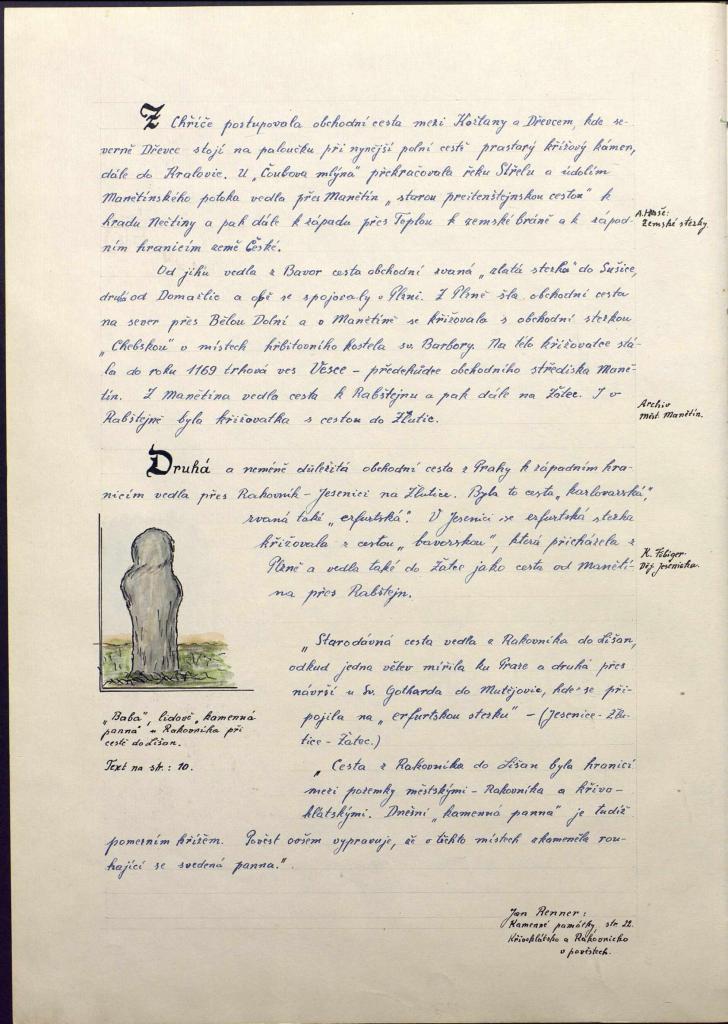 Z Chříče postupovala obchodní cesta mezi Kožlany a Dřevcem, kde se-
verně Dřevce stojí na paloučku při nynější polní cestě prastarý křížový kámen,
dále do Kralovic. U „Čoubova mlýna" překračovala řeku Střelu a údolím
Manětínského potoka vedla přes Manětín „starou preitenštejnskou cestou" k
hradu Nečtiny a pak dále k západu přes Teplou k zemské bráně a k západ-
ním hranicím země České.
A. Hass:
Zemské stezky.
Od jihu vedla z Bavor cesta obchodní zvaná „zlatá stezka" do Sušice,
druhá od Domažlic a obě se spojovaly v Plzni. Z Plzně šla obchodní cesta
na sever přes Bělou Dolní a v Manětíně se křižovala s obchodní stezkou
„Chebskou" v místech hřbitovního kostela sv. Barbory. Na této křižovatce stá-
la do roku 1169 trhová ves Vesce – předchůdce obchodního střediska Mane-
tín. Z Manětína vedla cesta k Rabštejnu a pak dále na Žatec. I v
Rabštejně byla křižovatka s cestou do Žlutic.
Archiv
měst. Manětín.
Druhá a neméně důležitá obchodní cesta z Prahy k západním hra-
nicím vedla přes Rakovník – Jesenici na Žlutice. Byla to cesta „karlovarská",
zvaná také „erfurtská". V Jesenici se erfurtská stezka
křižovala s cestou „bavorskou", která přicházela z
Plzně a vedla také do Žatec jako cesta od Manětí-
na přes Rabštejn.
K. Föbiger
Děj. Jesenicka.
„Starodávná cesta vedla z Rakovníka do Lišan,
odkud jedna větev mířila ku Praze a druhá přes
návrší u Sv. Gotharda do Mutějovic, kde se při-
pojila na „erfurtskou stezku" – (Jesenice – Žlu-
tice – Žatec.)
„Baba", lidově „kamenná
panna" u Rakovníka při
cestě do Lišan.
Text na str.: 10.
„Cesta z Rakovníka do Lišan byla hranicí
mezi pozemky městskými – Rakovníka a křivo-
klátskými. Dnešní „kamenná panna" je tudíž
pomezním křížem. Pověst ovšem vypravuje, že v těchto místech zkameněla rou-
hající se svedená panna."
Jan Renner:
Kamenné památky, str. 22.
Křivoklátsko a Rakovnicko
v pověstech.